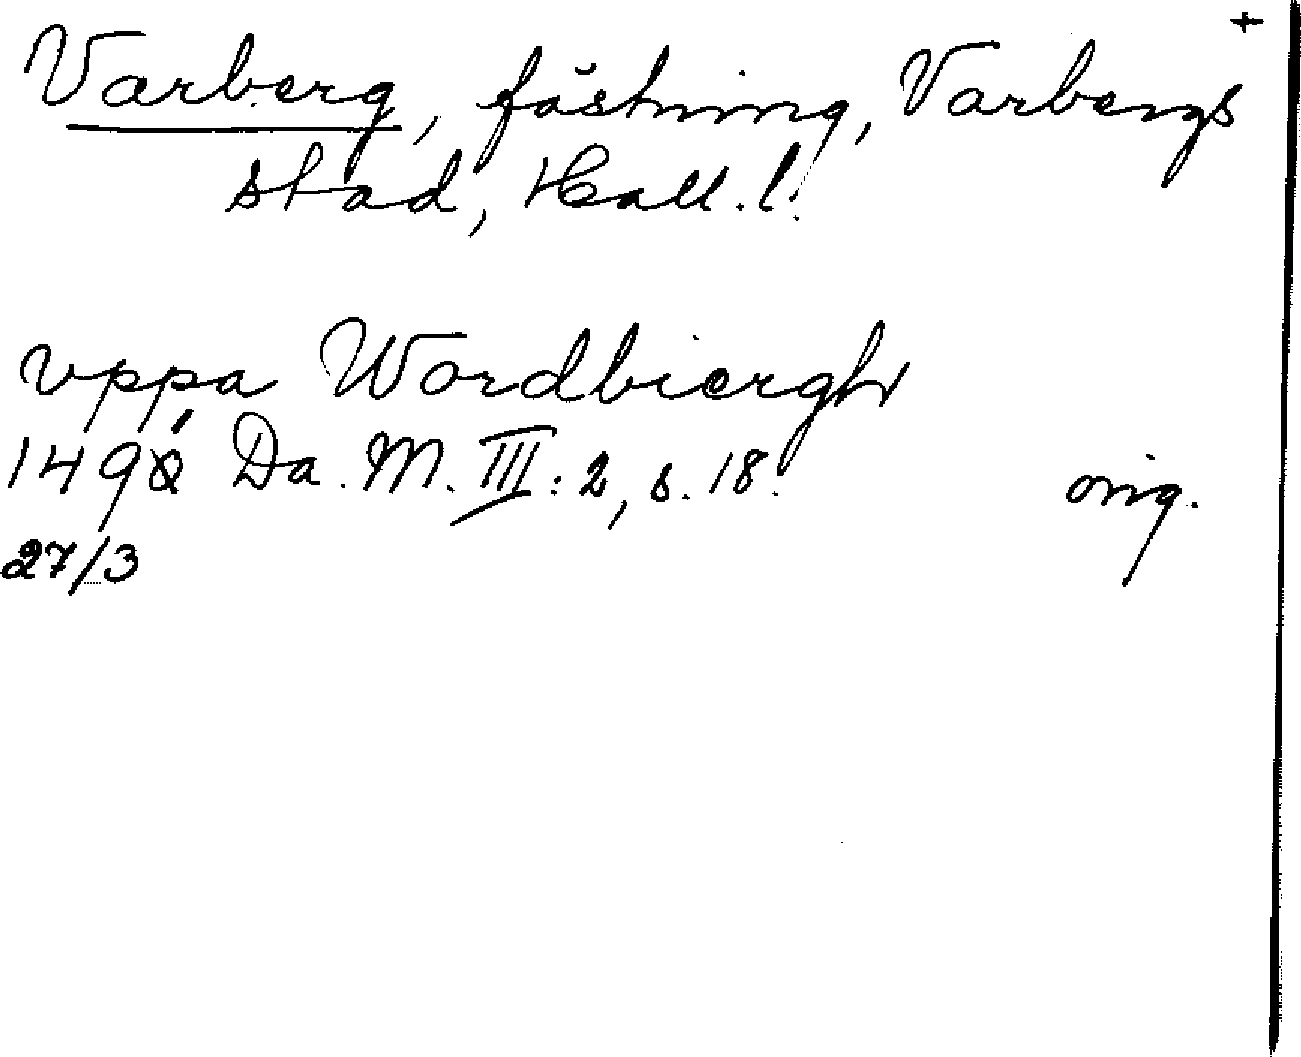 +
Varberg, fästning, Varbergs
stad, Hall. l.
vppa Wordbiergh
Da. M. III: 2, s. 18. orig.
27/3